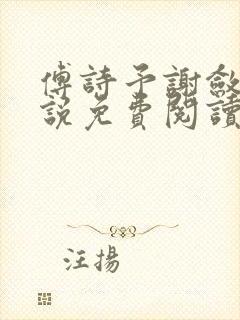 傅詩予謝斂
説免費閱讀
汪揚